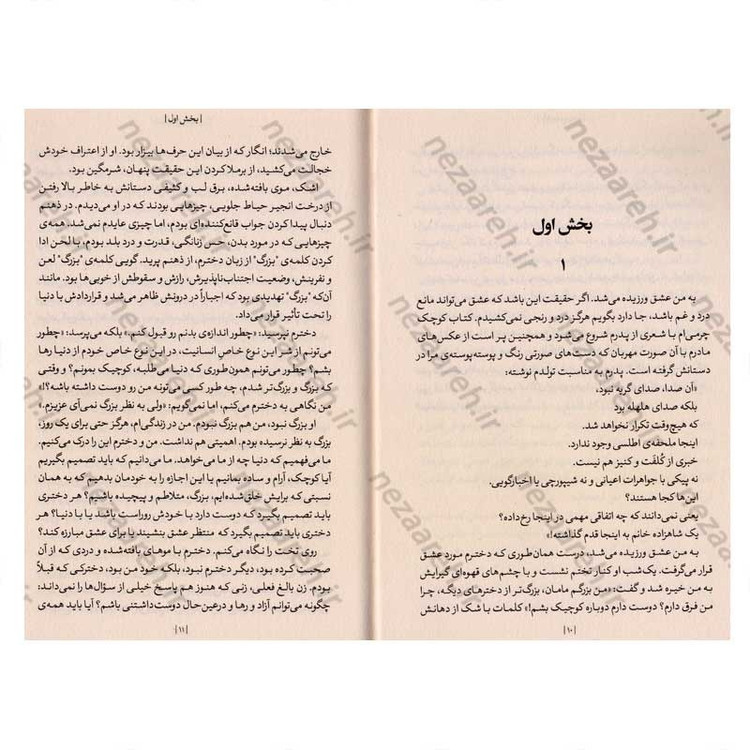 بخش اول
۱
به من عشق ورزیده می‌شد. اگر حقیقت این باشد که عشق می‌تواند مانع
درد و غم باشد، جا دارد بگویم هرگز درد و رنجی نمی‌کشیدم. کتاب کوچک
چرمی‌ام با شعری از پدرم شروع می‌شود و همچنین پر است از عکس‌های
مادرم با آن صورت مهربان که دست‌های صورتی رنگ و پوسته‌پوسته‌ی مرا در
دستانش گرفته است. پدرم به مناسبت تولدم نوشته:
«آن صدا، صدای گریه نبود،
بلکه صدای هلهله بود
که هیچ‌وقت تکرار نخواهد شد.
اینجا ملحفه‌ی اطلسی وجود ندارد.
خبری از کُلفَت و کنیز هم نیست.
نه پیکی با جواهرات اعیانی و نه شیپورچی با اخبارگویی.
این‌ها کجا هستند؟
یعنی نمی‌دانند که چه اتفاقی مهمی در اینجا رخ‌داده؟
یک شاهزاده خانم به اینجا قدم گذاشته!»
به من عشق ورزیده می‌شد، درست همان‌طوری که دخترم مورد عشق
قرار می‌گرفت. یک‌شب او کنار تختم نشست و با چشم‌های قهوه‌ای گیرایش
به من خیره شد و گفت: «من بزرگم مامان، بزرگ‌تر از دخترهای دیگه، چرا
من فرق دارم؟ دوست دارم دوباره کوچیک بشم!» کلمات با شک از دهانش
|۱۰|
|بخش اول|
خارج می‌شدند؛ انگار که از بیان این حرف‌ها بیزار بود. او از اعتراف خودش
خجالت می‌کشید، از برملاکردن این حقیقت پنهان، شرمگین بود.
اشک، موی بافته‌شده، برق لب و کثیفی دستانش به خاطر بالا رفتن
از درخت انجیر حیاط جلویی، چیزهایی بودند که در او می‌دیدم. در ذهنم
دنبال پیدا کردن جواب قانع‌کننده‌ای بودم، اما چیزی عایدم نمی‌شد. همه‌ی
چیزهایی که در مورد بدن، حس زنانگی، قدرت و درد بلد بودم، با لحن ادا
کردن کلمه‌ی "بزرگ" از زبان دخترم، از ذهنم پرید. گویی کلمه‌ی "بزرگ" لعن
و نفرینش، وضعیت اجتناب‌ناپذیرش، رازش و سقوطش از خوبی‌ها بود. مانند
آن‌که "بزرگ" تهدیدی بود که اجباراً در درونش ظاهر می‌شد و قراردادش با دنیا
را تحت تأثیر قرار می‌داد.
دخترم نپرسید: «چطور اندازه‌ی بدنم رو قبول کنم.» بلکه می‌پرسد: «چطور
می‌تونم از شر این نوع خاصِ انسانیت، در این نوع خاص خودم از دنیا رها
بشم؟ چطور می‌تونم همون‌طوری که دنیا می‌طلبه، کوچیک بمونم؟ و وقتی
که بزرگ و بزرگ‌تر شدم، چه طور کسی می‌تونه من رو دوست داشته باشه؟!»
من نگاهی به دخترم می‌کنم، اما نمی‌گویم: «ولی به نظر بزرگ نمی‌آی عزیزم.»
او بزرگ نبود، من هم بزرگ نبودم. من در زندگی‌ام، هرگز حتی برای یک روز،
بزرگ به نظر نرسیده بودم. اهمیتی هم نداشت. من و دخترم این را درک می‌کنیم.
ما می‌فهمیم که دنیا چه از ما می‌خواهد. ما می‌دانیم که باید تصمیم بگیریم
آیا کوچک، آرام و ساده بمانیم یا این اجازه را به خودمان بدهیم که به همان
نسبتی که برایش خلق شده‌ایم، بزرگ، متلاطم و پیچیده باشیم؟ هر دختری
باید تصمیم بگیرد که دوست دارد با خودش روراست باشد یا با دنیا؟ هر
دختری باید تصمیم بگیرد که منتظر عشق بنشیند یا برای عشق مبارزه کند؟
روی تخت را نگاه می‌کنم. دخترم با موهای بافته‌شده و دردی که از آن
صحبت کرده بود، دیگر دخترم نبود، بلکه خود من بود، دخترکی که قبلاً
بودم. زن بالغ فعلی، زنی که هنوز هم پاسخ خیلی از سؤال‌ها را نمی‌داند:
چگونه می‌توانم آزاد و رها و درعین‌حال دوست‌داشتنی باشم؟ آیا باید همه‌ی
|۱۱|
nezaareh.ir